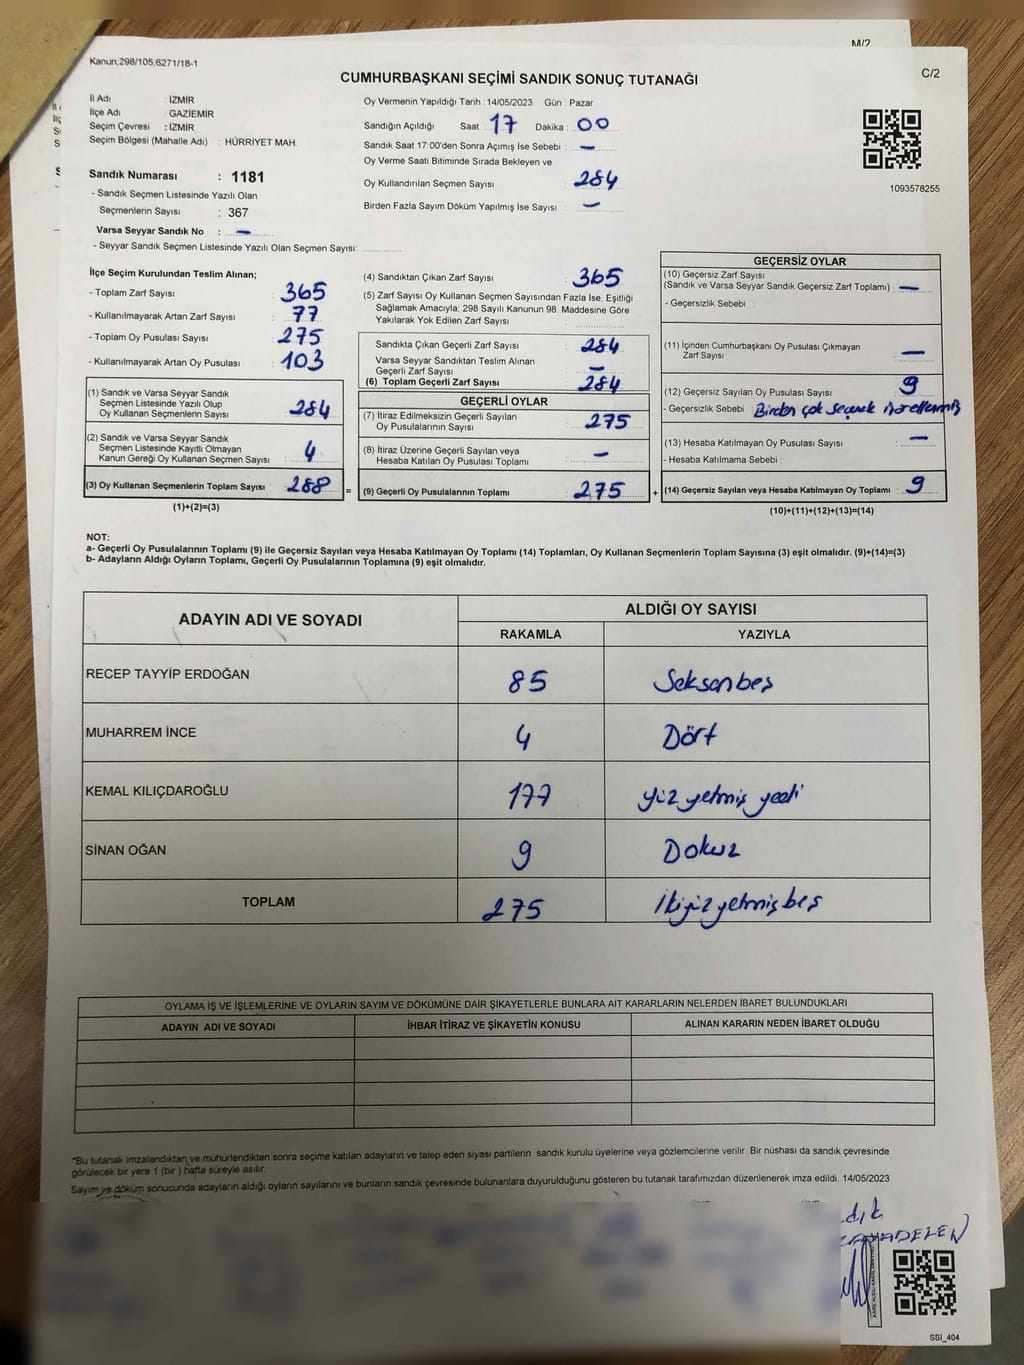 M/2
Kanun;298/105;6271/18-1
C/2
CUMHURBAŞKANI SEÇİMİ SANDIK SONUÇ TUTANAĞI
İl Adı : İZMİR
İlçe Adı : GAZİEMİR
Seçim Çevresi : İZMİR
Seçim Bölgesi (Mahalle Adı) : HÜRRİYET MAH.
Sandık Numarası : 1181
- Sandık Seçmen Listesinde Yazılı Olan
Seçmenlerin Sayısı : 367
Varsa Seyyar Sandık No : —
- Seyyar Sandık Seçmen Listesinde Yazılı Olan Seçmen Sayısı:
Oy Vermenin Yapıldığı Tarih :14/05/2023 Gün : Pazar
Sandığın Açıldığı Saat : 17 Dakika : 00
Sandık Saat 17:00'den Sonra Açımış İse Sebebi : —
Oy Verme Saati Bitiminde Sırada Bekleyen ve
Oy Kullandırılan Seçmen Sayısı : 284
Birden Fazla Sayım Döküm Yapılmış İse Sayısı : —
1093578255
İlçe Seçim Kurulundan Teslim Alınan;
- Toplam Zarf Sayısı : 365
- Kullanılmayarak Artan Zarf Sayısı : 77
- Toplam Oy Pusulası Sayısı : 275
- Kullanılmayarak Artan Oy Pusulası : 103
(1) Sandık ve Varsa Seyyar Sandık
Seçmen Listesinde Yazılı Olup
Oy Kullanan Seçmenlerin Sayısı : 284
(2) Sandık ve Varsa Seyyar Sandık
Seçmen Listesinde Kayıtlı Olmayan
Kanun Gereği Oy Kullanan Seçmen Sayısı : 4
(3) Oy Kullanan Seçmenlerin Toplam Sayısı : 288
(1)+(2)=(3)
=
(4) Sandıktan Çıkan Zarf Sayısı : 365
(5) Zarf Sayısı Oy Kullanan Seçmen Sayısından Fazla İse, Eşitliği
Sağlamak Amacıyla; 298 Sayılı Kanunun 98. Maddesine Göre
Yakılarak Yok Edilen Zarf Sayısı :
Sandıkta Çıkan Geçerli Zarf Sayısı : 284
Varsa Seyyar Sandıktan Teslim Alınan
Geçerli Zarf Sayısı : —
(6) Toplam Geçerli Zarf Sayısı : 284
GEÇERLİ OYLAR
(7) İtiraz Edilmeksizin Geçerli Sayılan
Oy Pusulalarının Sayısı : 275
(8) İtiraz Üzerine Geçerli Sayılan veya
Hesaba Katılan Oy Pusulası Toplamı : —
(9) Geçerli Oy Pusulalarının Toplamı : 275
+
GEÇERSİZ OYLAR
(10) Geçersiz Zarf Sayısı
(Sandık ve Varsa Seyyar Sandık Geçersiz Zarf Toplamı) : —
- Geçersizlik Sebebi :
(11) İçinden Cumhurbaşkanı Oy Pusulası Çıkmayan
Zarf Sayısı : —
(12) Geçersiz Sayılan Oy Pusulası Sayısı : 9
- Geçersizlik Sebebi : Birden çok seçenek işaretlenmiş
(13) Hesaba Katılmayan Oy Pusulası Sayısı : —
- Hesaba Katılmama Sebebi :
(14) Geçersiz Sayılan veya Hesaba Katılmayan Oy Toplamı : 9
(10)+(11)+(12)+(13)=(14)
NOT:
a- Geçerli Oy Pusulalarının Toplamı (9) ile Geçersiz Sayılan veya Hesaba Katılmayan Oy Toplamı (14) Toplamları, Oy Kullanan Seçmenlerin Toplam Sayısına (3) eşit olmalıdır. (9)+(14)=(3)
b- Adayların Aldığı Oyların Toplamı, Geçerli Oy Pusulalarının Toplamına (9) eşit olmalıdır.
ADAYIN ADI VE SOYADI
ALDIĞI OY SAYISI
RAKAMLA YAZIYLA
RECEP TAYYİP ERDOĞAN 85 Seksenbeş
MUHARREM İNCE 4 Dört
KEMAL KILIÇDAROĞLU 177 yüz yetmiş yedi
SİNAN OĞAN 9 Dokuz
TOPLAM 275 İkiyüz yetmiş beş
OYLAMA İŞ VE İŞLEMLERİNE VE OYLARIN SAYIM VE DÖKÜMÜNE DAİR ŞİKAYETLERLE BUNLARA AİT KARARLARIN NELERDEN İBARET BULUNDUKLARI
ADAYIN ADI VE SOYADI İHBAR İTİRAZ VE ŞİKAYETİN KONUSU ALINAN KARARIN NEDEN İBARET OLDUĞU
*Bu tutanak imzalandıktan ve mühürlendikten sonra seçime katılan adayların ve talep eden siyasi partilerin sandık kurulu üyelerine veya gözlemcilerine verilir .Bir nüshası da sandık çevresinde
görülecek bir yere 1 (bir ) hafta süreyle asılır.
Sayım ve döküm sonucunda adayların aldığı oyların sayılarını ve bunların sandık çevresinde bulunanlara duyurulduğunu gösteren bu tutanak tarafımızdan düzenlenerek imza edildi. 14/05/2023
SSI_404